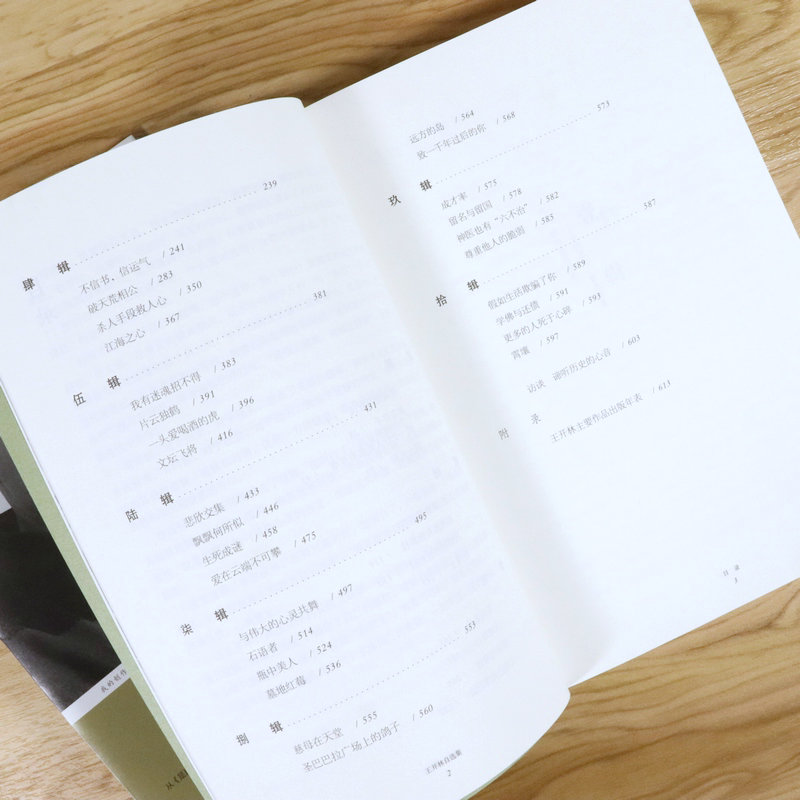 肆 辑 239
不信书，信运气 / 241
破天荒相公 / 283
杀人手段救人心 / 350
江海之心 / 367
伍 辑 381
我有迷魂招不得 / 383
片云独鹤 / 391
一头爱喝酒的虎 / 396
文坛飞将 / 416
陆 辑 431
悲欣交集 / 433
飘飘何所似 / 446
生死成谜 / 458
爱在云端不可攀 / 475
柒 辑 495
与伟大的心灵共舞 / 497
石语者 / 514
瓶中美人 / 524
墓地红莓 / 536
捌 辑 553
慈母在天堂 / 555
圣巴巴拉广场上的鸽子 / 560
王开林自选集
2
远方的岛 / 564
致一千年过后的你 / 568
玖 辑 573
成才率 / 575
留名与留国 / 578
神医也有“六不治” / 582
尊重他人的脆弱 / 585
拾 辑 587
假如生活欺骗了你 / 589
学佛与还债 / 591
更多的人死于心碎 / 593
霄壤 / 597
访谈 谛听历史的心音 / 603
附 录
王开林主要作品出版年表 / 613
目 录
3
我的创作